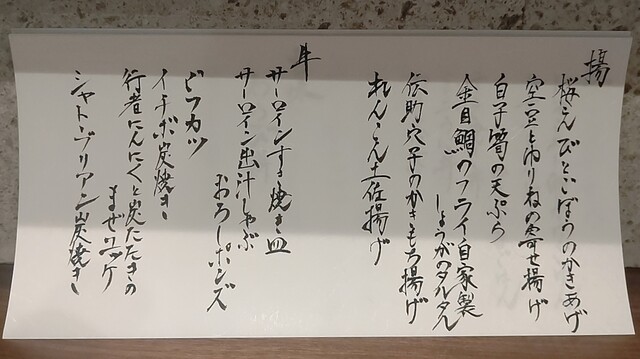 揚
桜えびとごぼうのかきあげ
空豆とゆりねの寄せ揚げ
白子筍の天ぷら
金目鯛のフライ自家製
しょうがのタルタル
伝助穴子のかきもち揚げ
れんこん土佐揚げ
牛
サーロインすき焼き一皿
サーロイン出汁しゃぶ
おろしポンズ
ビフカツ
イチボ炭焼き
行者にんにくと炭たたきの
まぜユッケ
シャトーブリアン炭焼き